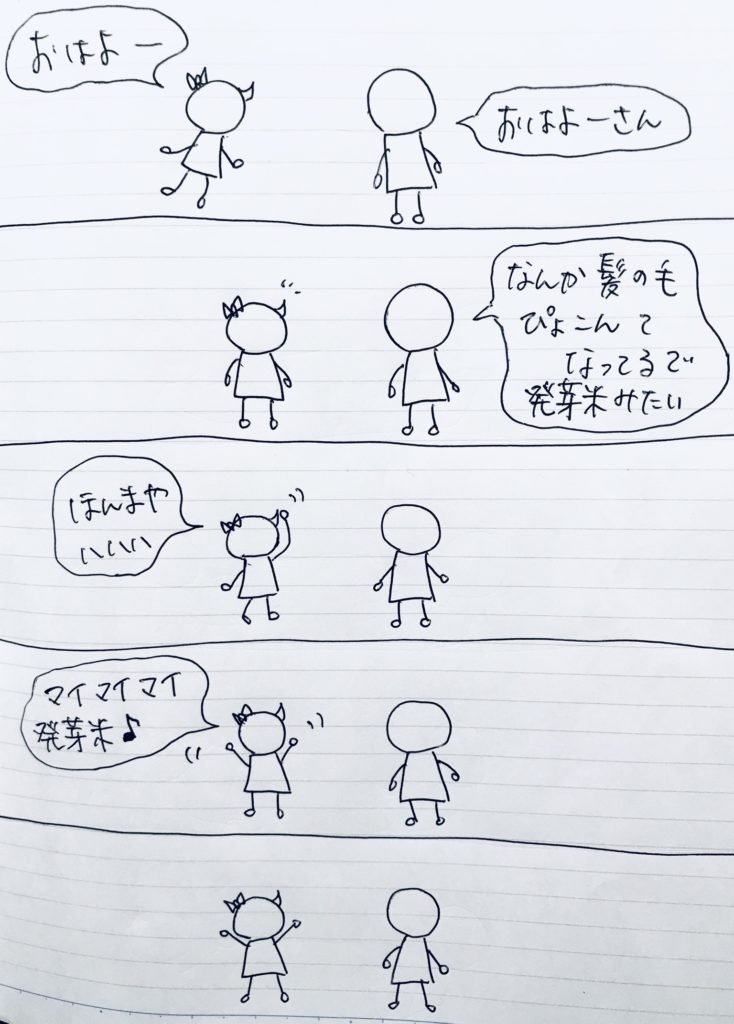 おはよー
おはよーさん
なんか髪の毛
ぴょこんて
なってるで
発芽米みたい
ほんまや
いいい
マイマイマイ
発芽米♪